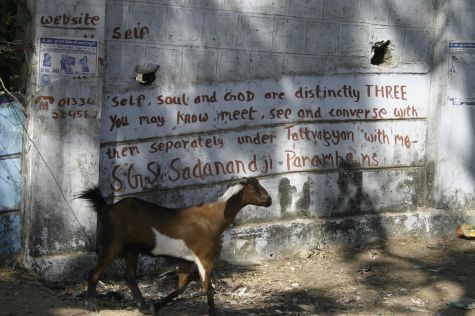 website
self
SELF, SOUL and GOD are distinctly THREE
You may know, meet, see and converse with
them separately under Tattvagyan with me-
S.G.S. Sadanand ji - Paramhans
01334